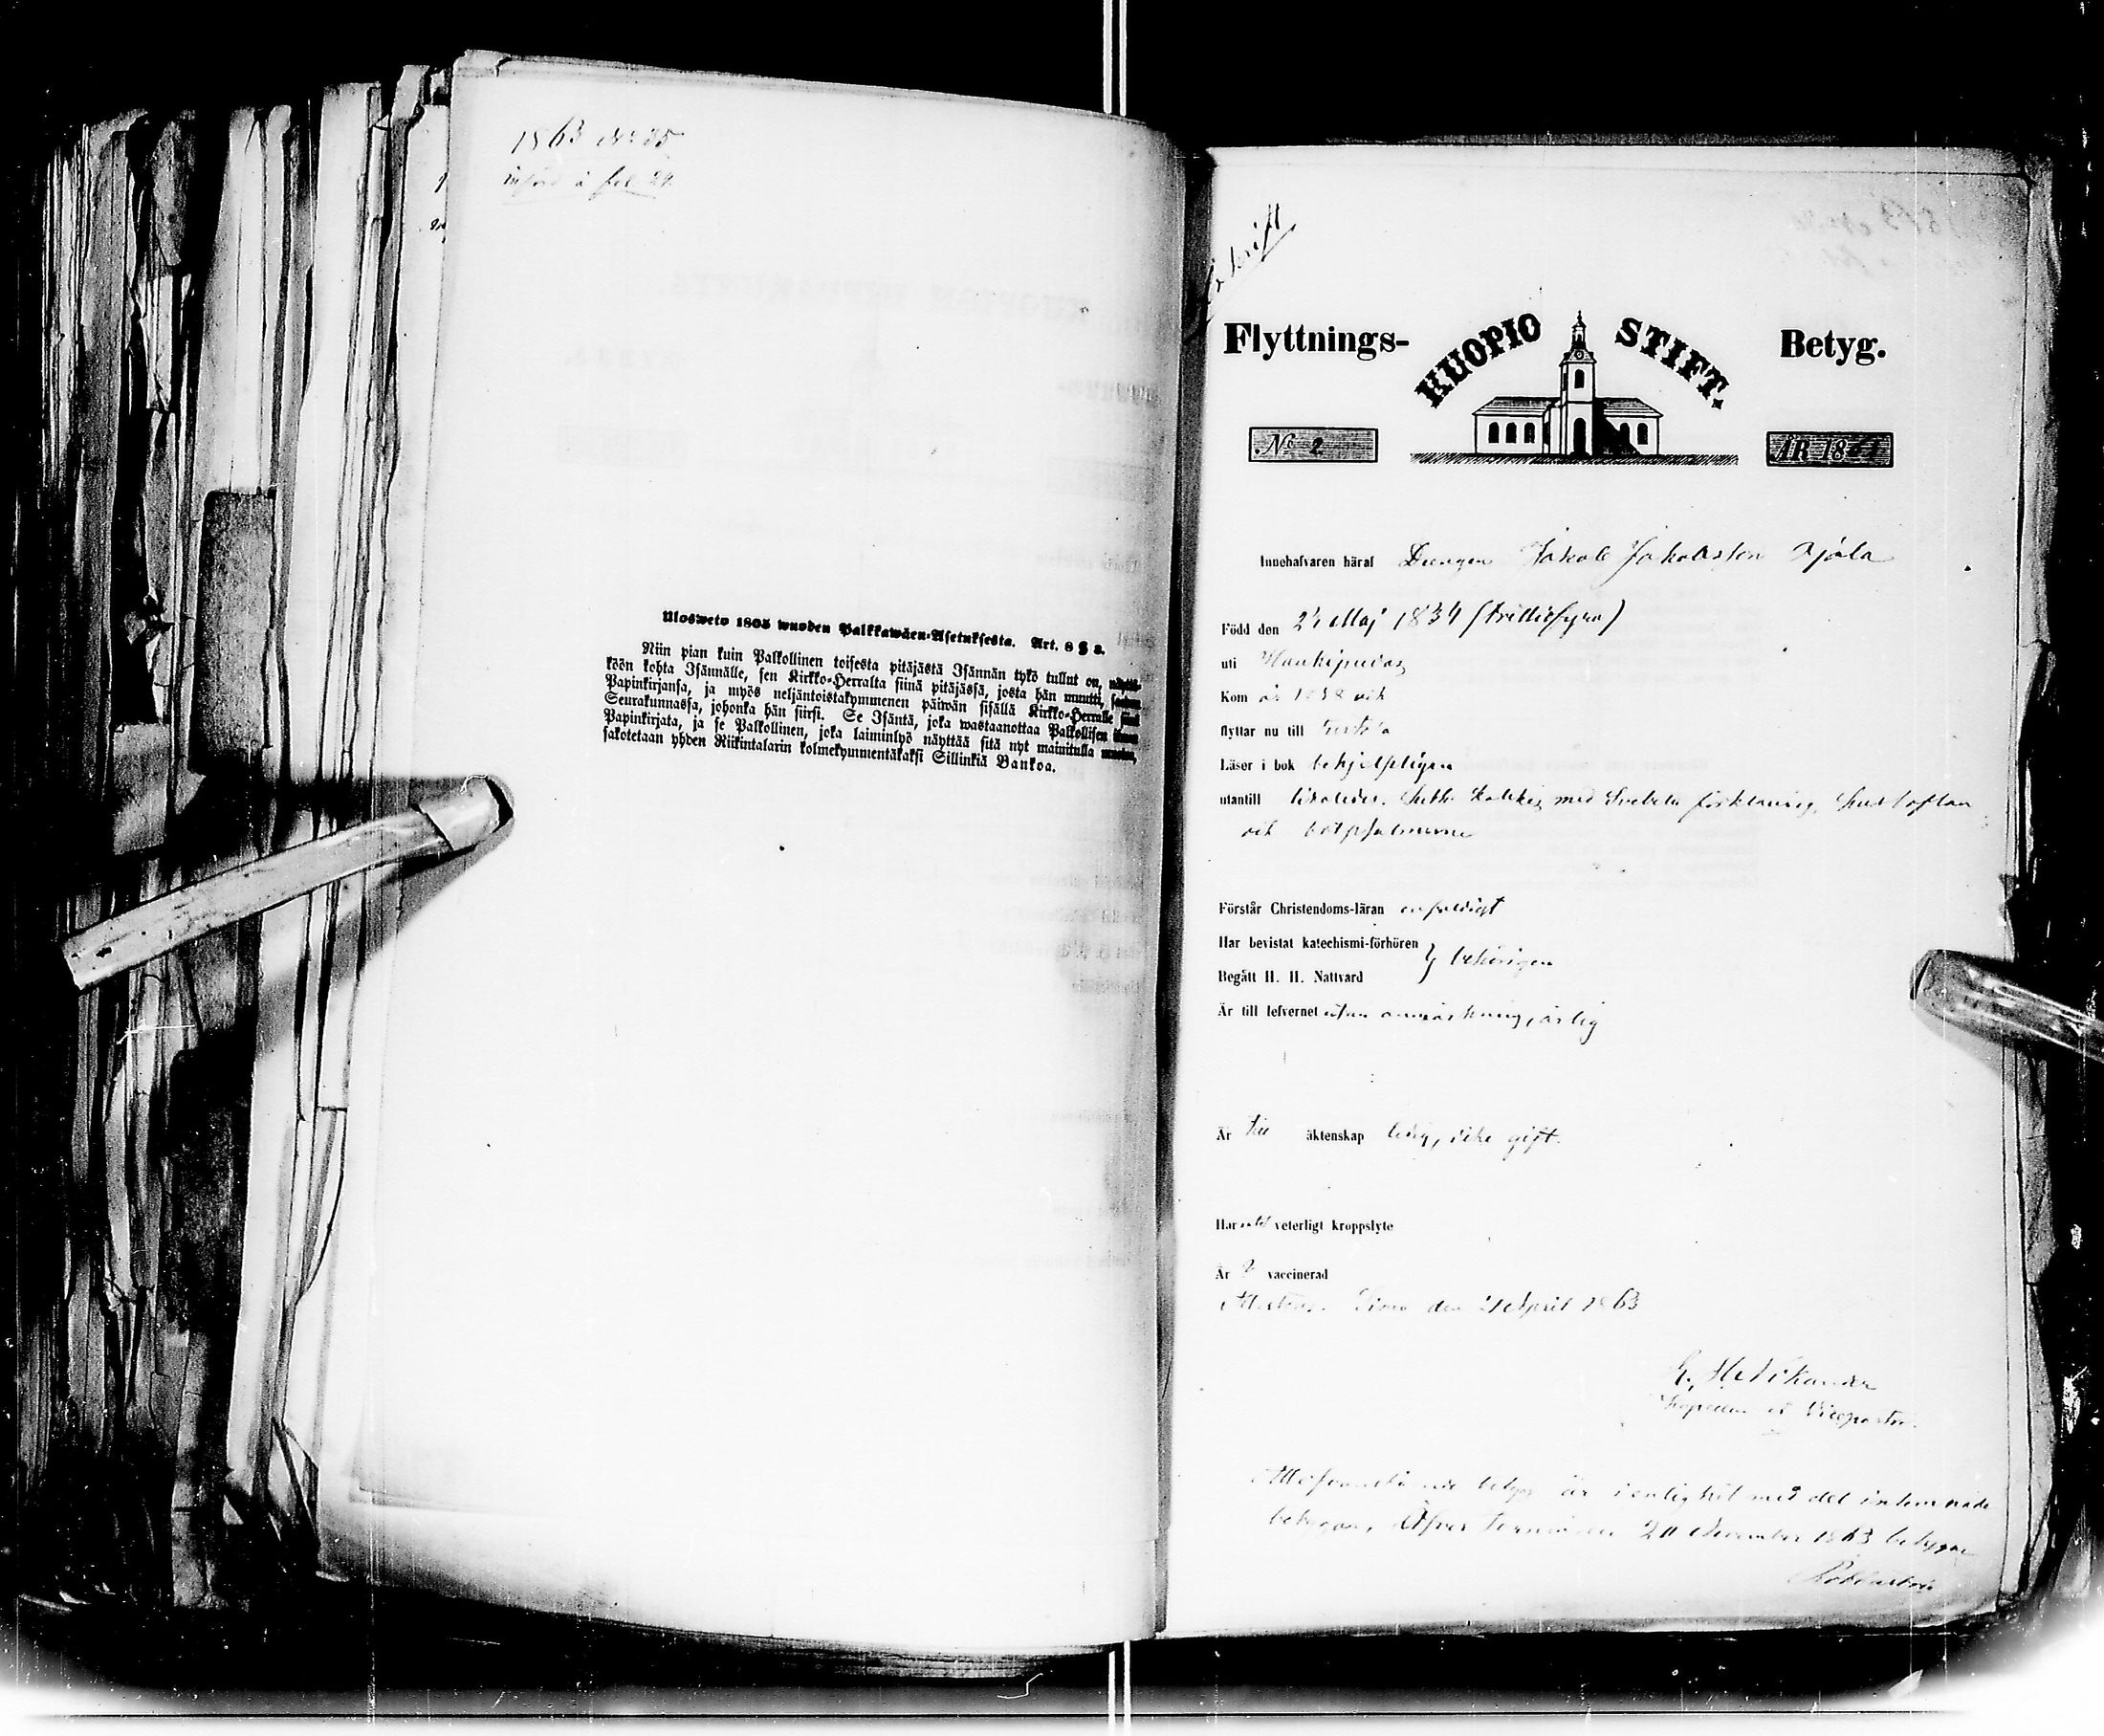 1863 No 35
införd å fol 29.
Ulosweto 1805 wuoden Palkkawäen-Asetuksesta. Art. 8 § 3.
Niin pian kuin Palkollinen toisesta pitäjästä Isännän tykö tullut on,
köön kohta Isännälle, sen Kirkko-Herralta siinä pitäjässä, josta hän muutti,
Papinkirjansa, ja myös neljäntoistakymmenen päiwän sisällä Kirkko-Herralle
Seurakunnassa, johonka hän siirsi. Se Isäntä, joka wastaanottaa Palkollisen
Papinkirjata, ja se Palkollinen, joka laiminlyö näyttää sitä nyt mainitulla
sakotetaan yhden Riikintalarin kolmekymmentäkaksi Sillinkiä Bankoa.
Flyttnings- KUOPIO STIFT. Betyg.
No 2 ÅR 18
Innehafvaren häraf Drengen Jakob Jakobsson
Född den 24 Maj 1834 (trittiofyra)
uti Haukipudas
Kom år 1858 och
flyttar nu till
Läser i bok behjelpligen
utantill Lutheri Katekes med Svebelii förklaring, hustaflan
och botpsalmerne
Förstår Christendoms-läran enfaldigt
Har bevistat katechismi-förhören
} behörigen
Begått H. H. Nattvard
Är till lefvernet utan anmärkning, ärlig
Är till äktenskap ledig, icke gift.
Har intet veterligt kroppslyte
Är vaccinerad
Attesteras. Simo den 21 April 1863
Kapellan et Vicepastor.
betyg är i enlighet med det inlemnade
betygas, 1863 betygar